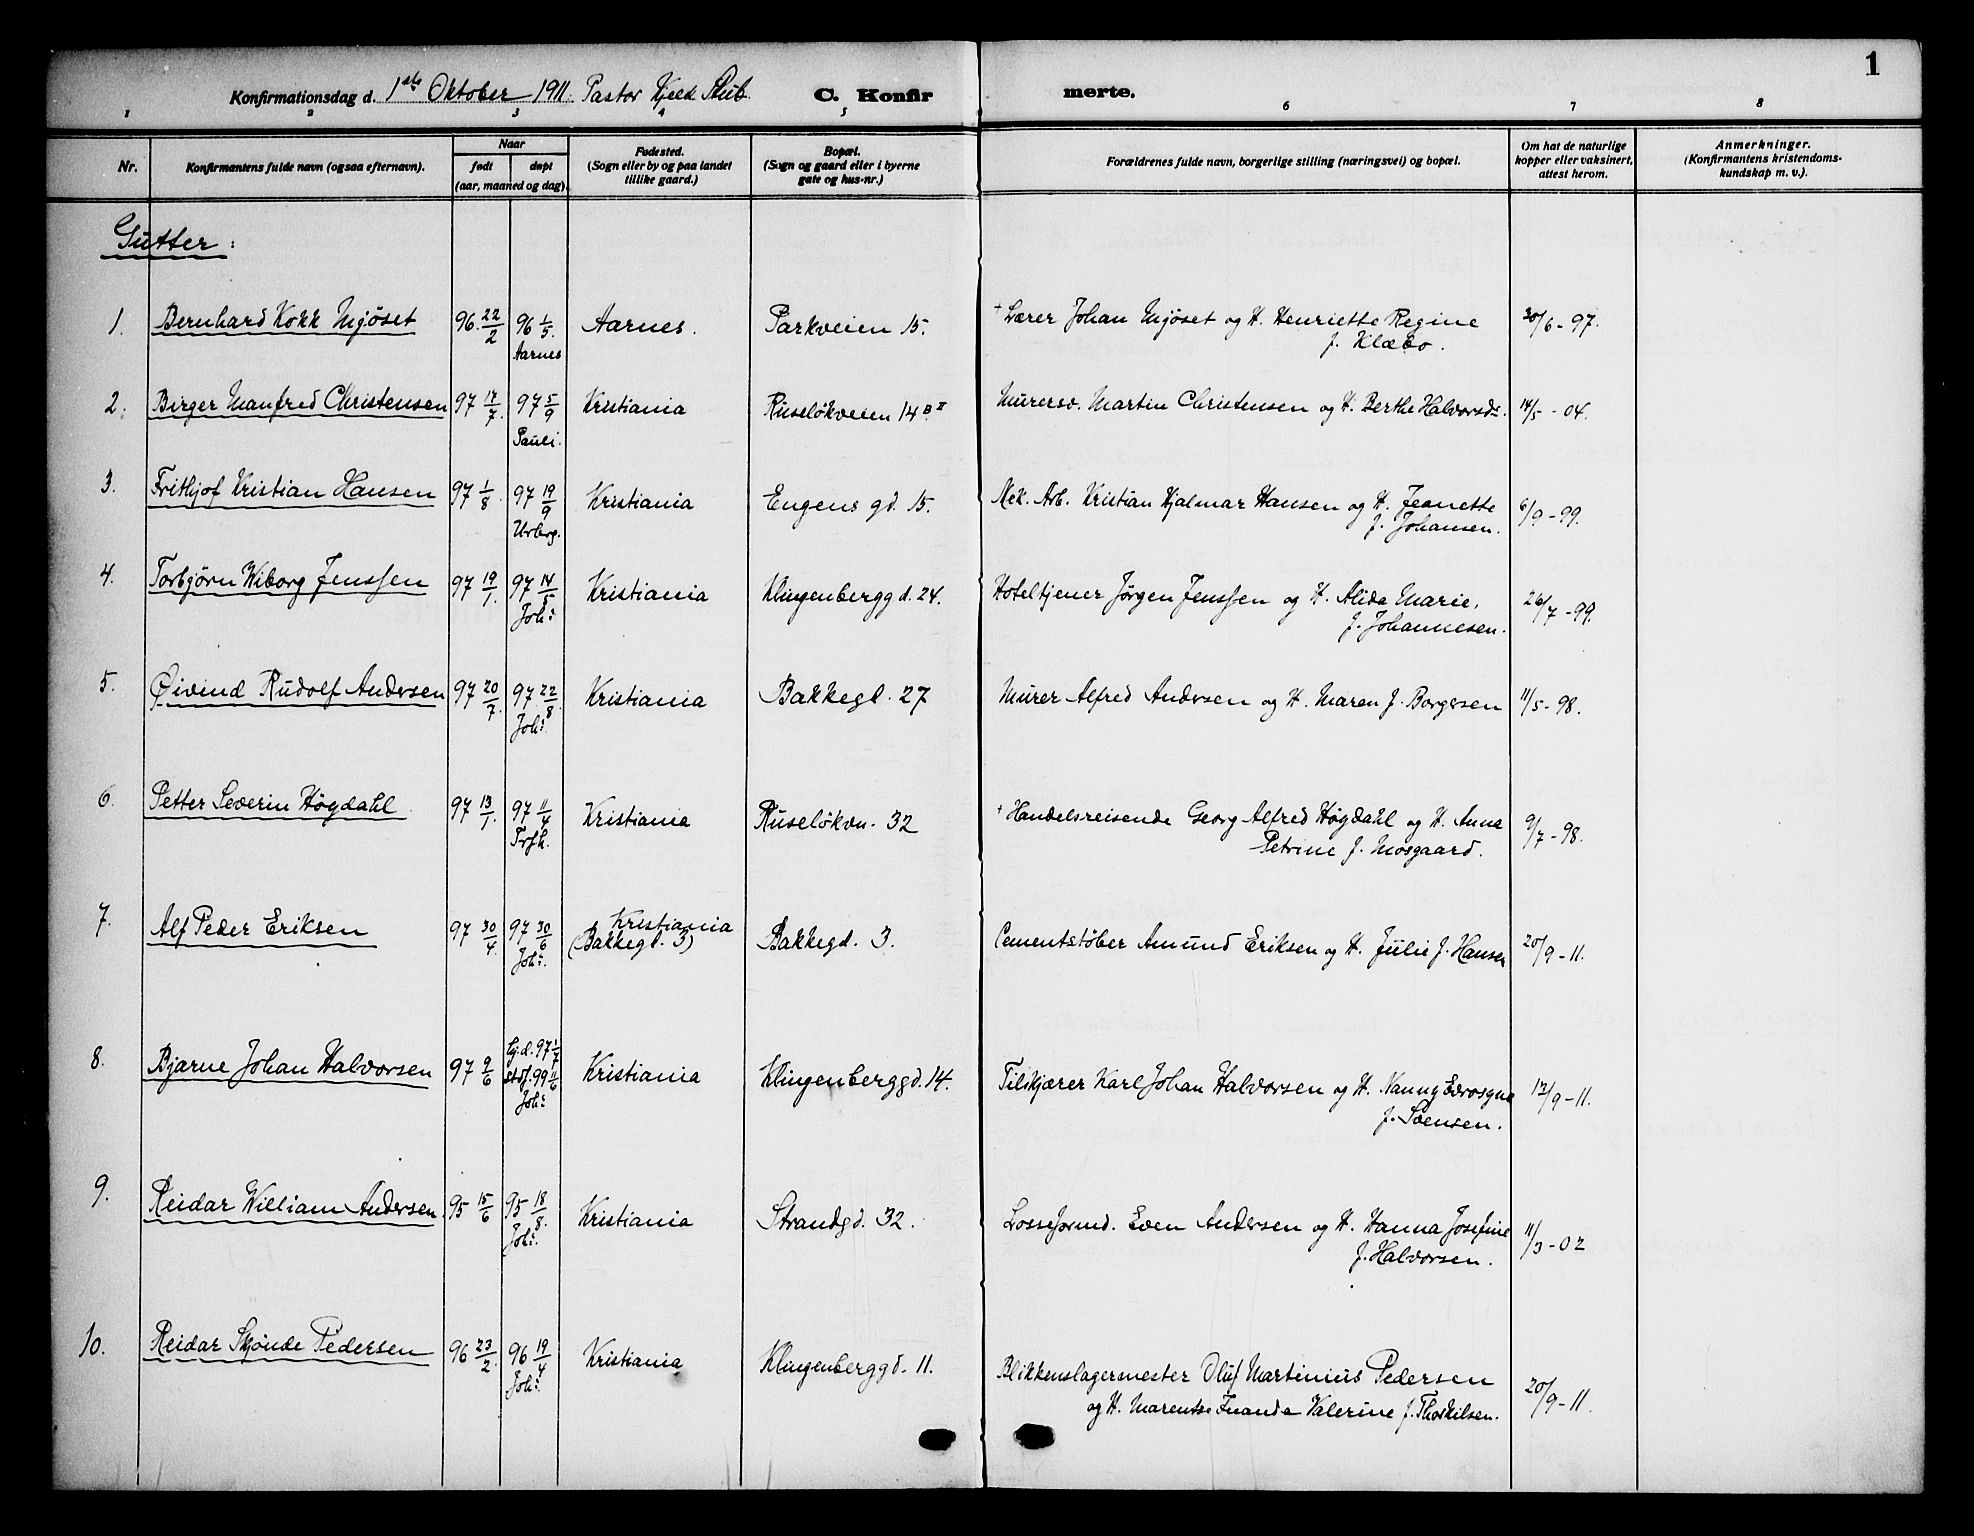 1
Konfirmationsdag d. 1ste Oktober 1911. Pastor Kjeld Stub. C. Konfirmerte.
1 2 3 4 5 6 7 8
Nr. Konfirmantens fulde navn (ogsaa efternavn). Naar født døpt (aar, maaned og dag). Fødested. (Sogn eller by og paa landet tillike gaard.) Bopæl. (Sogn og gaard eller i byerne gate og hus-nr.) Forældrenes fulde navn, borgerlige stilling (næringsvei) og bopæl. Om har de naturlige kopper eller vaksinert, attest herom. Anmerkninger. (Konfirmantens kristendomskundskap m. v.).
Gutter:
1. Bernhard Kokk Mjøset 96 22/2 96 1/5. Aarnes Aarnes. Parkveien 15. + Lærer Johan Mjøset og H. Henriette Regine 30/6-97.
f. Klæbo.
2. Birger Manfred Christensen 97 17/7. 97 5/9 Pauli. Kristiania Ruseløkveien 14 B II Murersv. Martin Christensen og H. Berthe Halvorsd. 14/5-04.
3. Frithjof Kristian Hansen 97 1/8. 97 19/9 Urbrg. Kristiania Engens gd. 15. Mek. Arb. Kristian Hjalmar Hansen og H. Jeanette 6/9-99.
f. Johansen.
4. Torbjørn Wiborg Jenssen 97 19/1. 97 14/5 Joh: Kristiania Klingenberggd. 24. Hoteltjener Jørgen Jenssen og H. Alida Marie, 26/7-99.
f. Johannesen.
5. Øivind Rudolf Andersen 97 20/7. 97 22/8. Joh: Kristiania Bakkegt. 27 Murer Alfred Andersen og H. Maren f. Borgersen 11/5-98.
6. Petter Severin Høgdahl. 97 13/1. 97 11/4 Trfh. Kristiania Ruseløkvn. 32 + Handelsreisende Georg Alfred Høgdahl og H. Anna 9/7-98.
Petrine f. Mosgaard.
7. Alf Peder Eriksen 97 30/4. 97 30/6 Joh:. Kristiania (Bakkegt. 3) Bakkegd. 3. Cementstøber Amund Eriksen og H. Julie f. Hansen 20/9-11.
8. Bjarne Johan Halvorsen 97 9/6 hj.d. 97 1/7 stdf. 99 11/6 Joh: Kristiania Klingenberggd. 14. Tilskjærer Karl Johan Halvorsen og H. Nanny 12/9-11.
9. Reidar William Andersen. 95 15/6 95 18/8. Joh:. Kristiania Strandgd. 32. Losseformd. Even Andersen og H. Hanna Josefine 11/3-02
f. Halvorsen.
10. Reidar Skjønde Pedersen 96 23/2. 96 19/4 Joh:. Kristiania Klingenberggd. 11. Blikkenslagermester Oluf Martinius Pedersen 20/9-11.
og H. Valerine f. Thorkilsen.